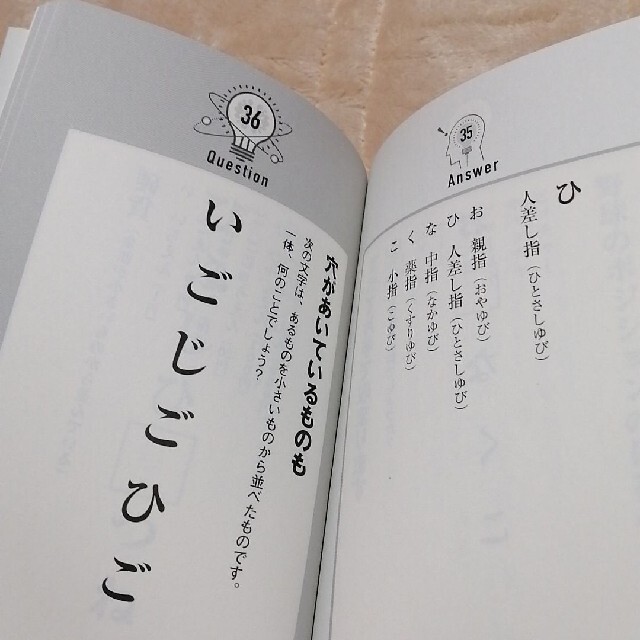 35
Answer
ひ
人差し指(ひとさしゆび)
お 親指(おやゆび)
ひ 人差し指(ひとさしゆび)
な 中指(なかゆび)
く 薬指(くすりゆび)
こ 小指(こゆび)
36
Question
穴があいているものも
次の文字は、あるものを小さいものから並べたものです。
一体、何のことでしょう?
いごじごひご